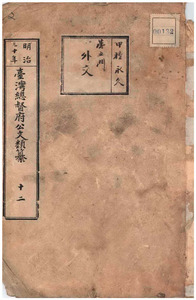 明治
二十八年
臺灣總督府公文類纂
十二
甲種永久
外文